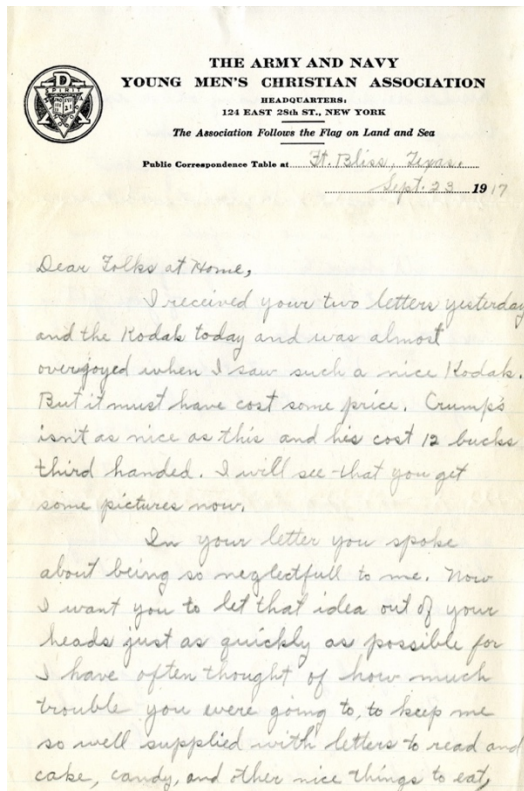 THE ARMY AND NAVY
YOUNG MEN'S CHRISTIAN ASSOCIATION
HEADQUARTERS:
124 EAST 28th ST., NEW YORK
The Association Follows the Flag on Land and Sea
Public Correspondence Table at Ft. Bliss, Texas.
Sept. 23 1917
Dear Folks at Home,
I received your two letters yesterday
and the Kodak today and was almost
overjoyed when I saw such a nice Kodak.
But it must have cost some price. Crump's
isn't as nice as this and his cost 12 bucks
third handed. I will see that you get
some pictures now.
In your letter you spoke
about being so neglectfull to me. Now
I want you to let that idea out of your
heads just as quickly as possible for
I have often thought of how much
trouble you were going to, to keep me
so well supplied with letters to read and
cake, candy, and other nice things to eat,